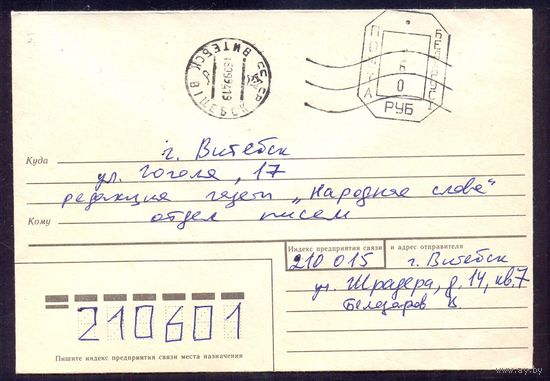 ВИТЕБСК
ВІЦЕБСК
ПОЧТА
БЕЛАРУСЬ
60
РУБ
Куда
г. Витебск
ул. Гоголя, 17
редакция газеты „Народнае слова“
Кому
отдел писем
Индекс предприятия связи и адрес отправителя
210 015 г. Витебск
ул. Шрадера, д. 14, кв. 7
210601
Пишите индекс предприятия связи места назначения
www.ay.by